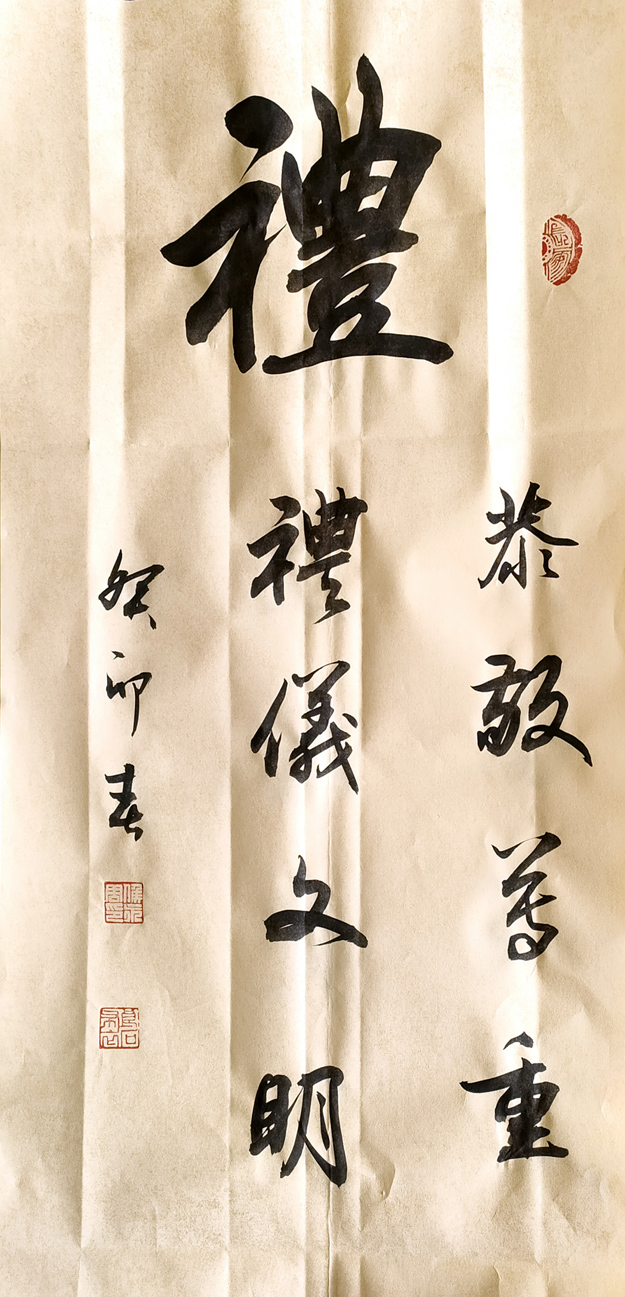 禮
恭敬尊重
禮儀文明
癸卯春